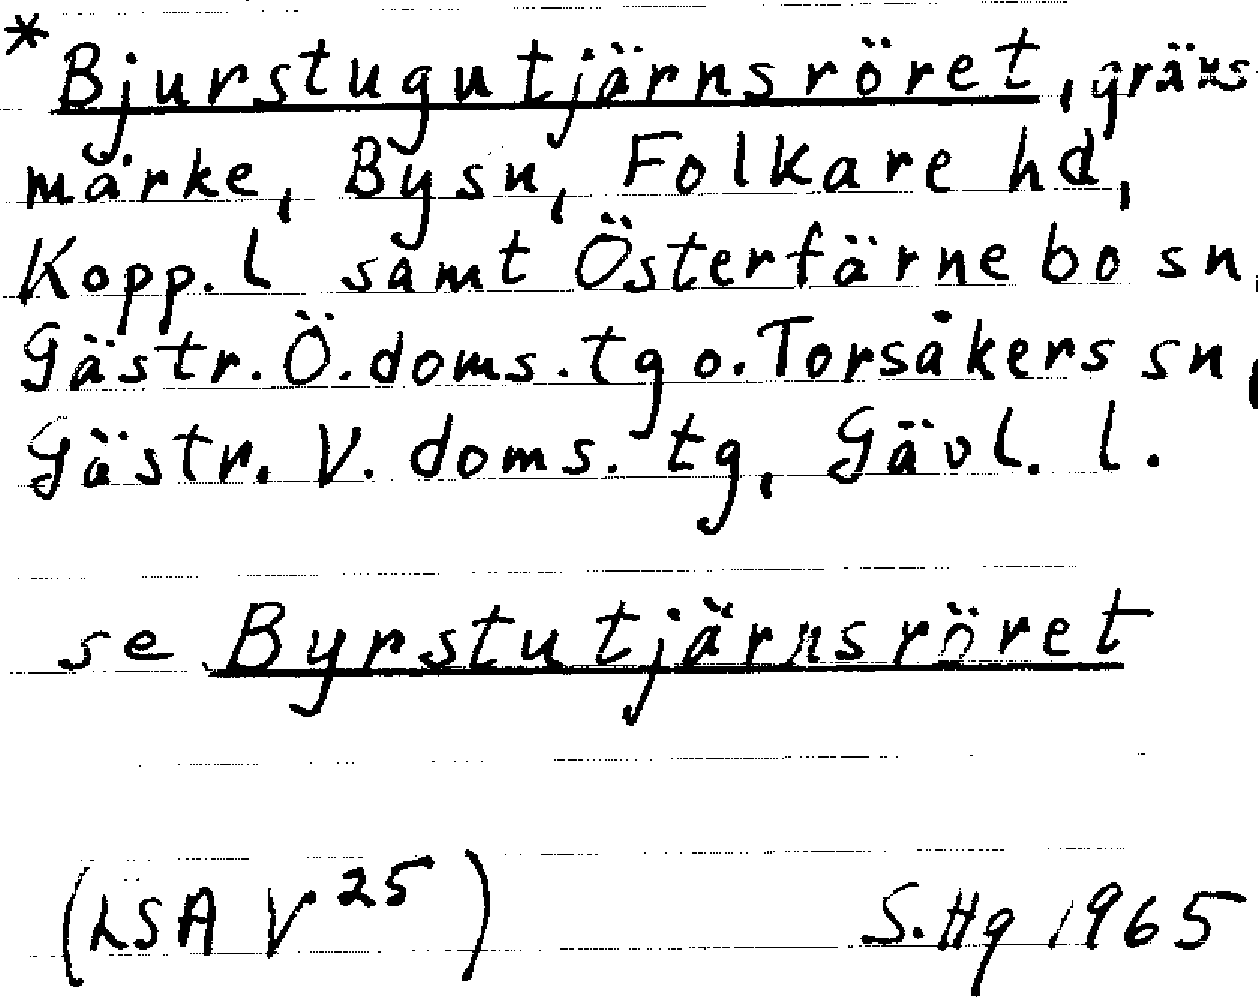 *Bjurstugutjärnsröret, gräns
märke, By sn, Folkare hd,
Kopp. l samt Österfärnebo sn,
Gästr. Ö. doms. tg o. Torsåkers sn,
Gästr. V. doms. tg, Gävl. l.
se Byrstutjärnsröret
(LSA V 25) S. Hg 1965